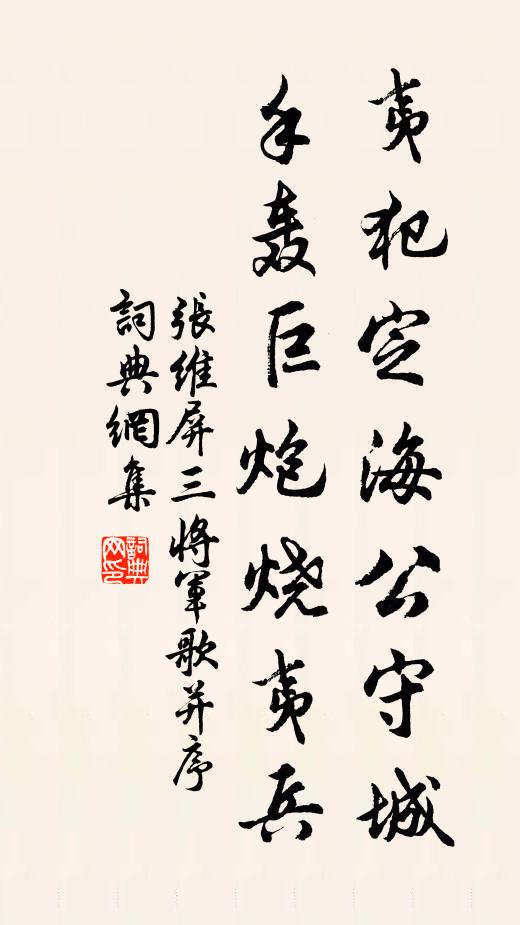 夷犯定海公守城
手轰巨炮烧夷兵
張維屏三將軍歌并序
詞典網集
詞典网印